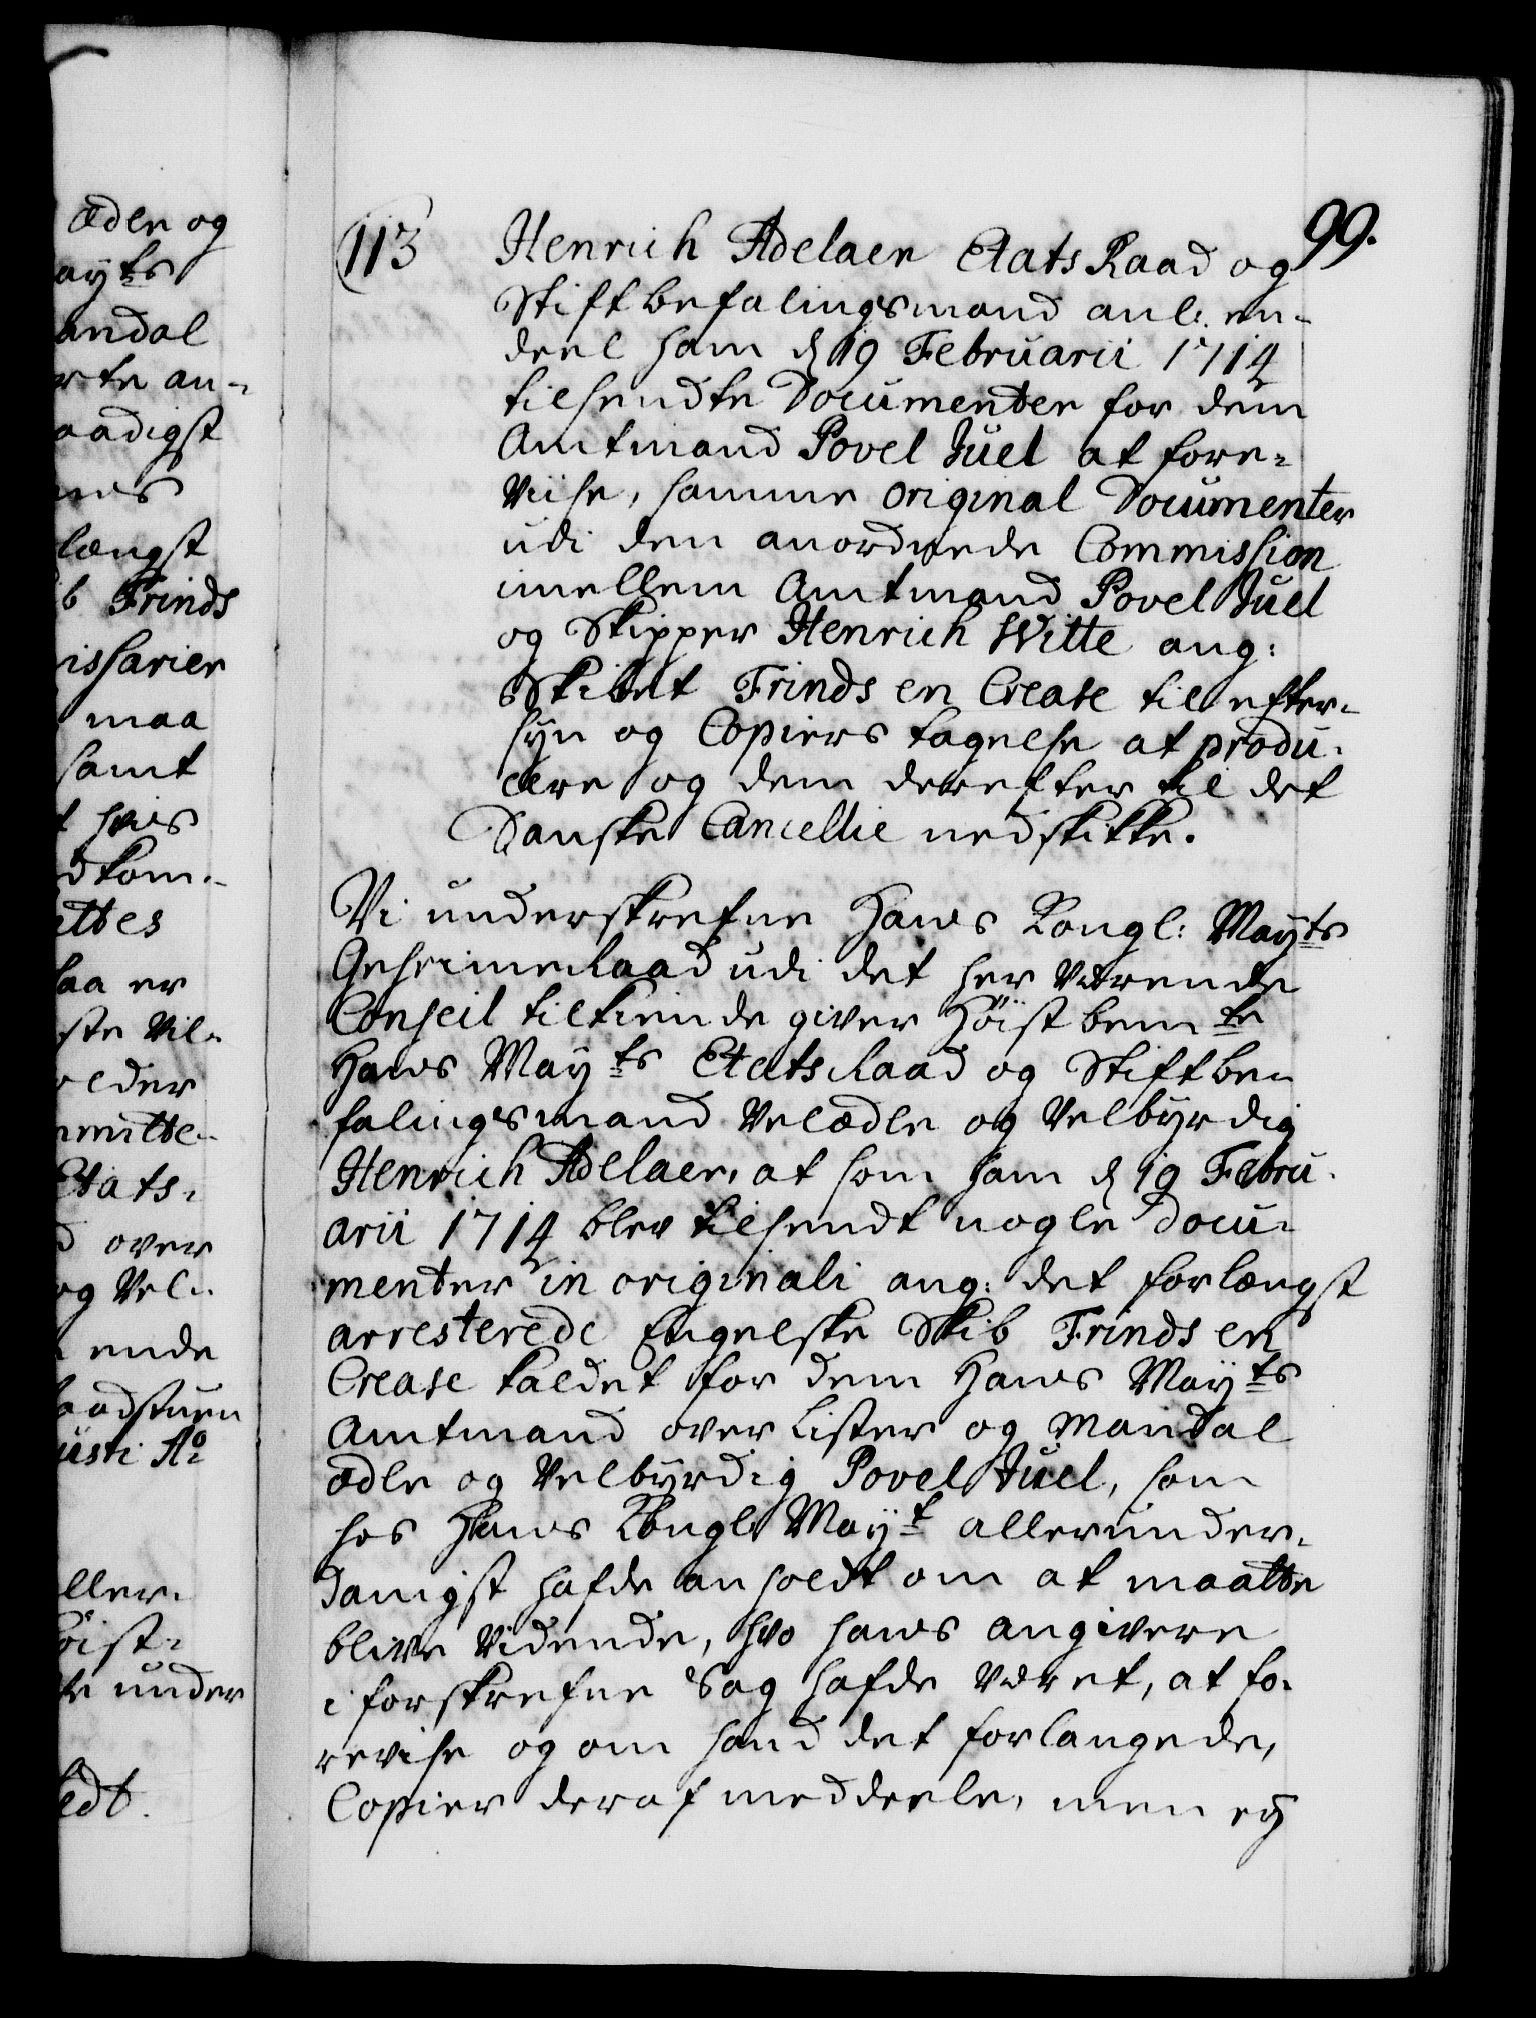 ædle og
ayts
andal
rte an-
aadigst
længst
b Frinds
issarier
maa
samt
t hvis
dkom-
ettes
saa er
ste Vil-
elder
mitte-
Etats-
d over
og Vel-
ende
aadstuen
usti Ao
ller-
öist-
te under
edt.
99.
113 Henrich Adelaer Etats Raad og
Stiftbefalingsmand anl: en-
deel ham d 19 Februarii 1714
tilsendte Documenter for dem
Amtmand Povel Juel at fore-
viise, samme original Documenter
udi den anordnede Commission
imellem Amtmand Povel Juel
og Skipper Henrich Witte ang:
Skibet Frinds en Crease til efter-
syn og Copiers tagelse at produ-
cere og dem derefter til det
Danske Cancellie nedskikke.
Vi underskrefne Hans Kongl: Mayts
Geheimeraad udi det her værende
Conseil tilkiende giver Höist bemte
Hans Mayts Etatsraad og Stiftbe-
falingsmand Velædle og Velbyrdig
Henrich Adelaer, at som ham d 19 Febru-
arii 1714 blev tilsendt nogle Docu-
menter in originali ang: det forlængst
arresterede Engelske Skib Frinds en
Crease kaldet for dem Hans Mayts
Amtmand over Lister og Mandal
ædle og Velbyrdig Povel Juel, som
hos Hans Kongl: Mayt allerunder-
danigst hafde anholdt om at maatte
blive vidende, hvo hans angivere
i forskrefne Sag hafde været, at fo-
revise og om hand det forlangede,
Copier deraf meddeele, men ej